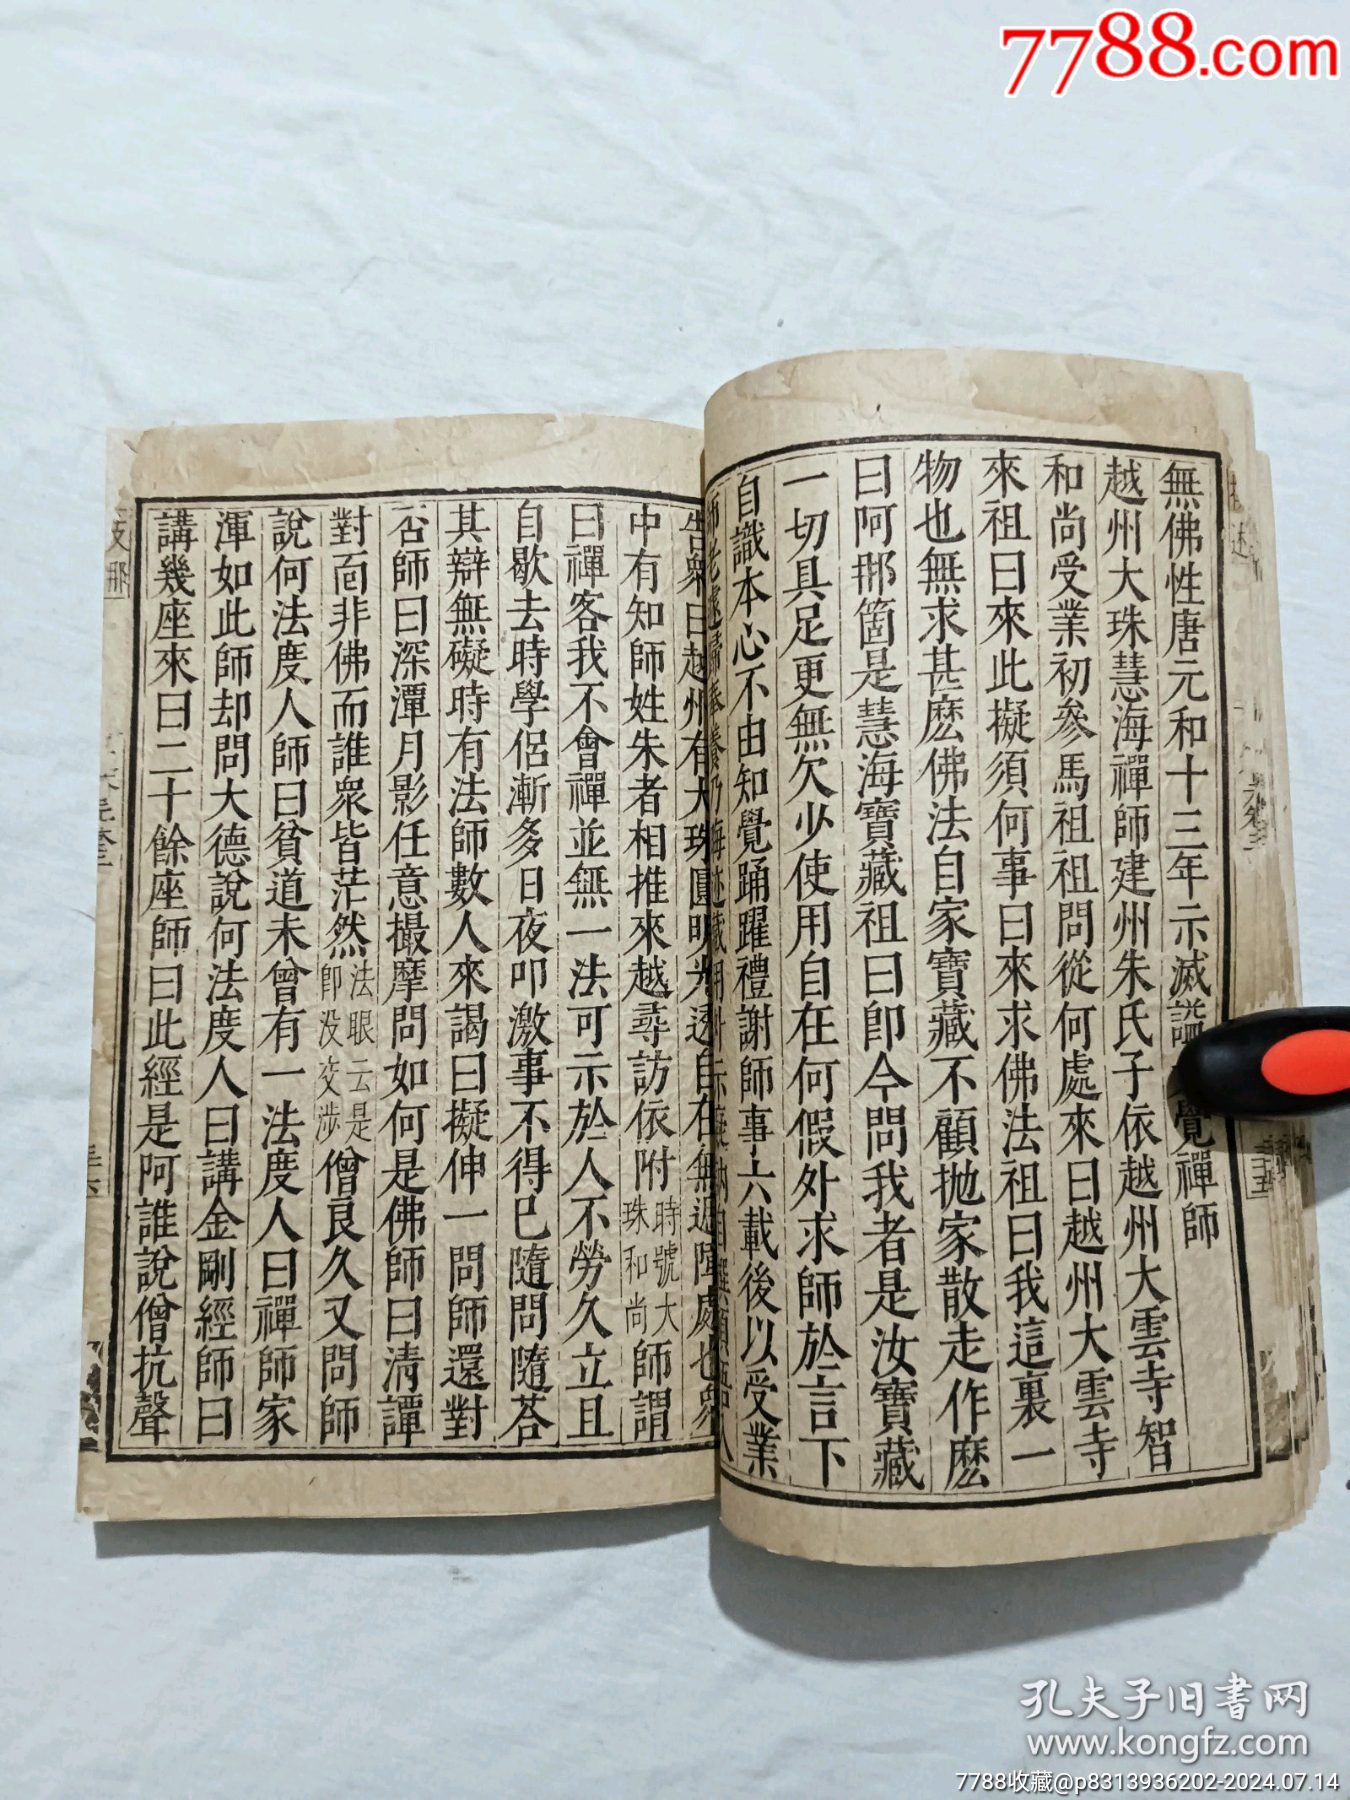 7788.com
無佛性唐元和十三年示滅謚覺禪師
越州大珠慧海禪師建州朱氏子依越州大雲寺智
和尚受業初參馬祖祖問從何處來曰越州大雲寺
來祖曰來此擬須何事曰來求佛法祖曰我這裏一
物也無求甚麽佛法自家寶藏不顧抛家散走作麽
曰阿那箇是慧海寶藏祖曰卽今問我者是汝寶藏
一切具足更無欠少使用自在何假外求師於言下
自識本心不由知覺踊躍禮謝師事六載後以受業
師老遽歸奉養乃晦迹藏用外示癡訥自撰頓悟入
告衆曰越州有大珠圓明光透自在無遮障處也衆
中有知師姓朱者相推來越尋訪依附時號大珠和尚師謂
曰禪客我不會禪並無一法可示於人不勞久立且
自歇去時學侶漸多日夜叩激事不得已隨問隨荅
其辯無礙時有法師數人來謁曰擬伸一問師還對
否師曰深潭月影任意撮摩問如何是佛師曰淸譚
對面非佛而誰衆皆茫然法眼云是卽没交涉僧良久又問師
說何法度人師曰貧道未曾有一法度人曰禪師家
渾如此師却問大德說何法度人曰講金剛經師曰
講幾座來曰二十餘座師曰此經是阿誰說僧抗聲
孔夫子旧书网
www.kongfz.com
7788收藏@p8313936202-2024.07.14